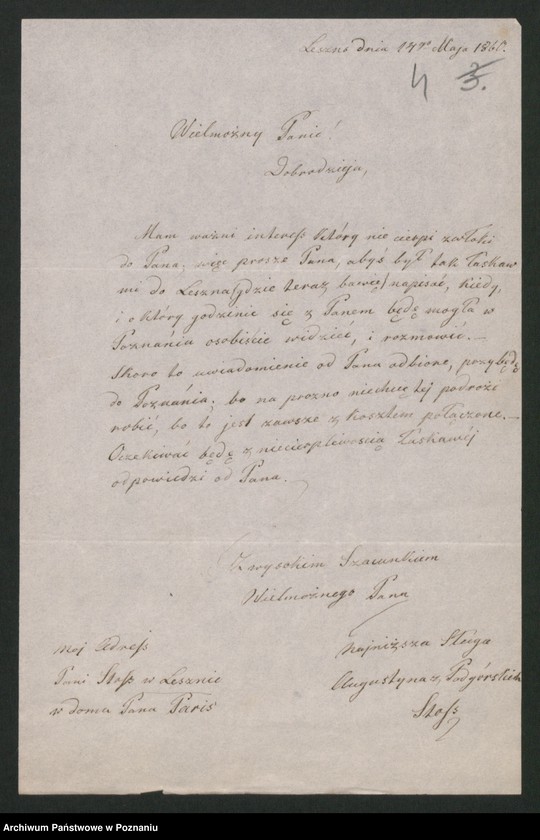 Leszno dnia 14go Maja 1860.
4 3.
Wielmożny Panie!
Dobrodzieja,
Mam ważni interess który nie cierpi zwłoki
do Pana, więc prosze Pana, abyś był tak łaskaw
mi do Leszna (gdzie teraz bawię) napisać, kiedy,
i o który godzenie się z Panem będę mogła w
Poznániu osobiście widzieć, i rozmowić. –
Skoro to uwiadomienie od Pana odbione, przybędę
do Poznánia, bo na prozno niechcę téj podroże
robić, bo to jest zawsze z kosztem połączone. –
Oczekiwać będę z niecierpliwoscią łaskawéj
odpowiedzi od Pana.
Z wysokim Szacunkiem
Wielmożnego Pana
Moj Adress
Pani Stoss w Lesznie
w domu Pana Paris
najniższa Sługa
Augustyna z Podgórskich
Stoss
Archiwum Państwowe w Poznaniu